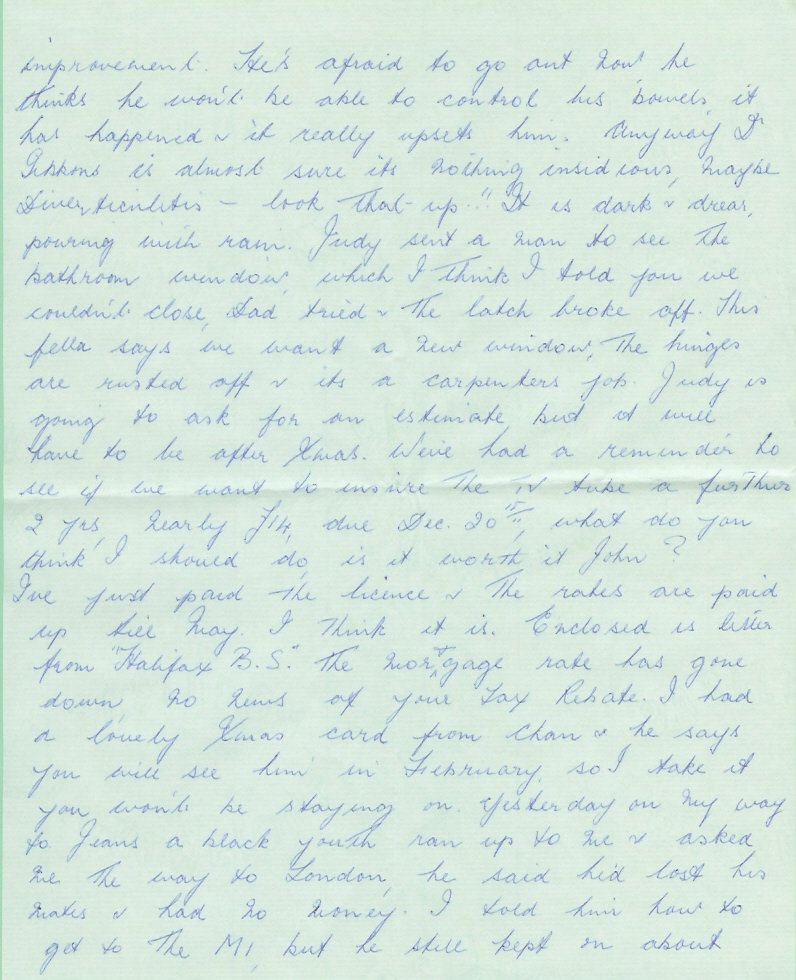 improvement. He's afraid to go out now he
thinks he won't be able to control his bowels, it
has happened & it really upsets him. Anyway Dr
Gibbons is almost sure its nothing insidious, maybe
Diverticulitis - look that up." It is dark & drear,
pouring with rain. Judy sent a man to see the
bathroom window, which I think I told you we
couldn't close, Dad tried & the latch broke off. This
fella says we want a new window, the hinges
are rusted off & its a carpenters job. Judy is
going to ask for an estimate but it will
have to be after Xmas. We've had a reminder to
see if we want to insure the TV tube a further
2 yrs, nearly £14, due Dec. 20th, what do you
think I should do, is it worth it John?
I've just paid the licence & the rates are paid
up till May. I think it is. Enclosed is letter
from "Halifax B.S." the mortgage rate has gone
down, no news of your Tax Rebate. I had
a lovely Xmas card from Chan & he says
you will see him in February, so I take it
you won't be staying on. Yesterday on my way
to Jeans a black youth ran up to me & asked
me the way to London, he said he'd lost his
mates & had no money. I told him how to
get to the M1, but he still kept on about